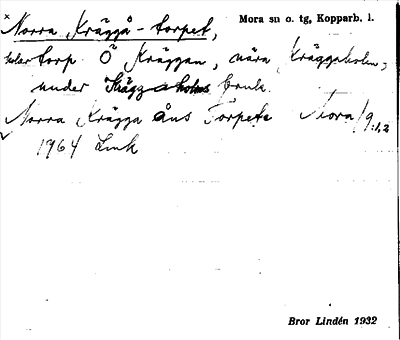 × Norra Kräggå-torpet, Mora sn o. tg, Kopparb. l.
torp Ö Kräggan, nära Kräggaholm,
under Kräggaholms bruk.
Norra Krägga åns Torpet Mora/9.1.2
1964 Link
Bror Lindén 1932